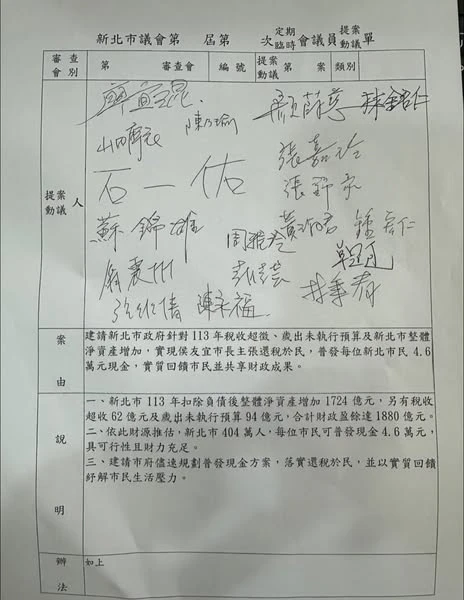 新北市議會第 屆第 次定期臨時會議員提案動議單
審查會別 第 審查會 編號 提案動議 第 案 類別
提案動議人
廖宜琨 顏蔚慈 林銘仁
山田摩衣 陳乃瑜
石一佑 張嘉玲
張錦豪
蘇錦雄 周雅玲 黃淑君 鍾宏仁
卓冠廷
陳永福 林秉宥
案由
建請新北市政府針對113年稅收超徵、歲出未執行預算及新北市整體
淨資產增加,實現侯友宜市長主張還稅於民,普發每位新北市民 4.6
萬元現金,實質回饋市民並共享財政成果。
說明
一、新北市 113 年扣除負債後整體淨資產增加 1724 億元,另有稅收
超收 62 億元及歲出未執行預算 94 億元,合計財政盈餘達 1880 億元。
二、依此財源推估,新北市 404 萬人,每位市民可普發現金 4.6 萬元,
具可行性且財力充足。
三、建請市府儘速規劃普發現金方案,落實還稅於民,並以實質回饋
紓解市民生活壓力。
辦法
如上